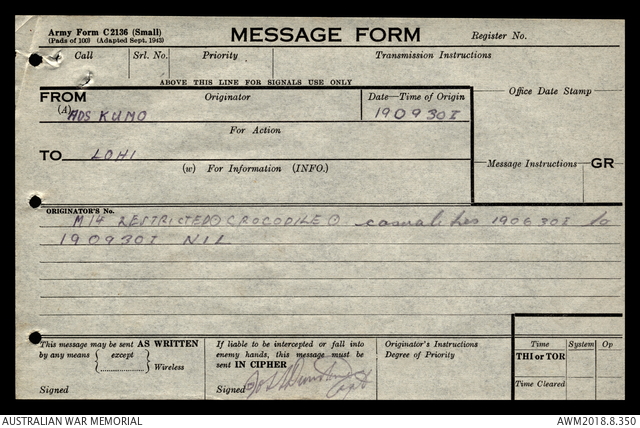 Army Form C2136 (Small)
(Pads of 100) (Adapted Sept. 1943)
MESSAGE FORM
Register No.
Call Srl. No. Priority Transmission Instructions
ABOVE THIS LINE FOR SIGNALS USE ONLY
FROM (A) Originator Date—Time of Origin
Office Date Stamp
ADS KUMO 190930I
For Action
TO LOHI
(W) For Information (INFO.)
Message Instructions GR
ORIGINATOR'S No.
M14 RESTRICTED CROCODILE casualties 190630I to
190930I NIL
This message may be sent AS WRITTEN
by any means { except } Wireless
Signed
If liable to be intercepted or fall into
enemy hands, this message must be
sent IN CIPHER
Signed
Originator's Instructions
Degree of Priority
Time System Op
THI or TOR
Time Cleared
AUSTRALIAN WAR MEMORIAL
AWM2018.8.350